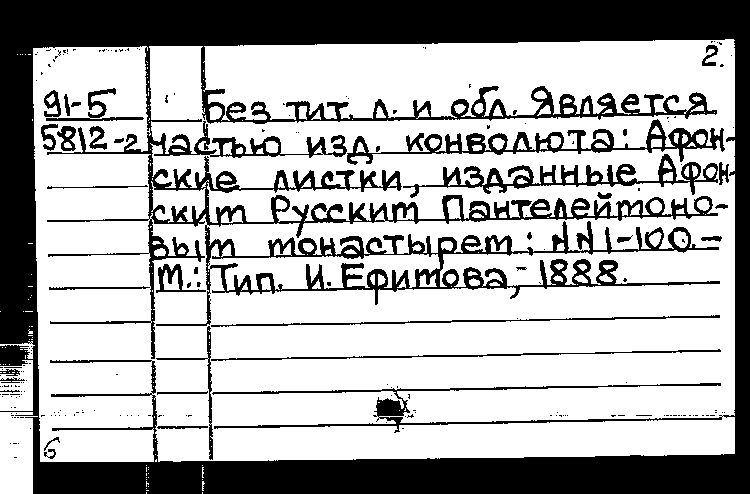 2.
91-5 Без тит. л. и обл. Является
5812-2 частью изд. конволюта: Афон-
ские листки, изданные Афон-
ским Русским Пантелеймоно-
вым монастырем: NN1-100.-
М.: Тип. И. Ефимова,- 1888.
6